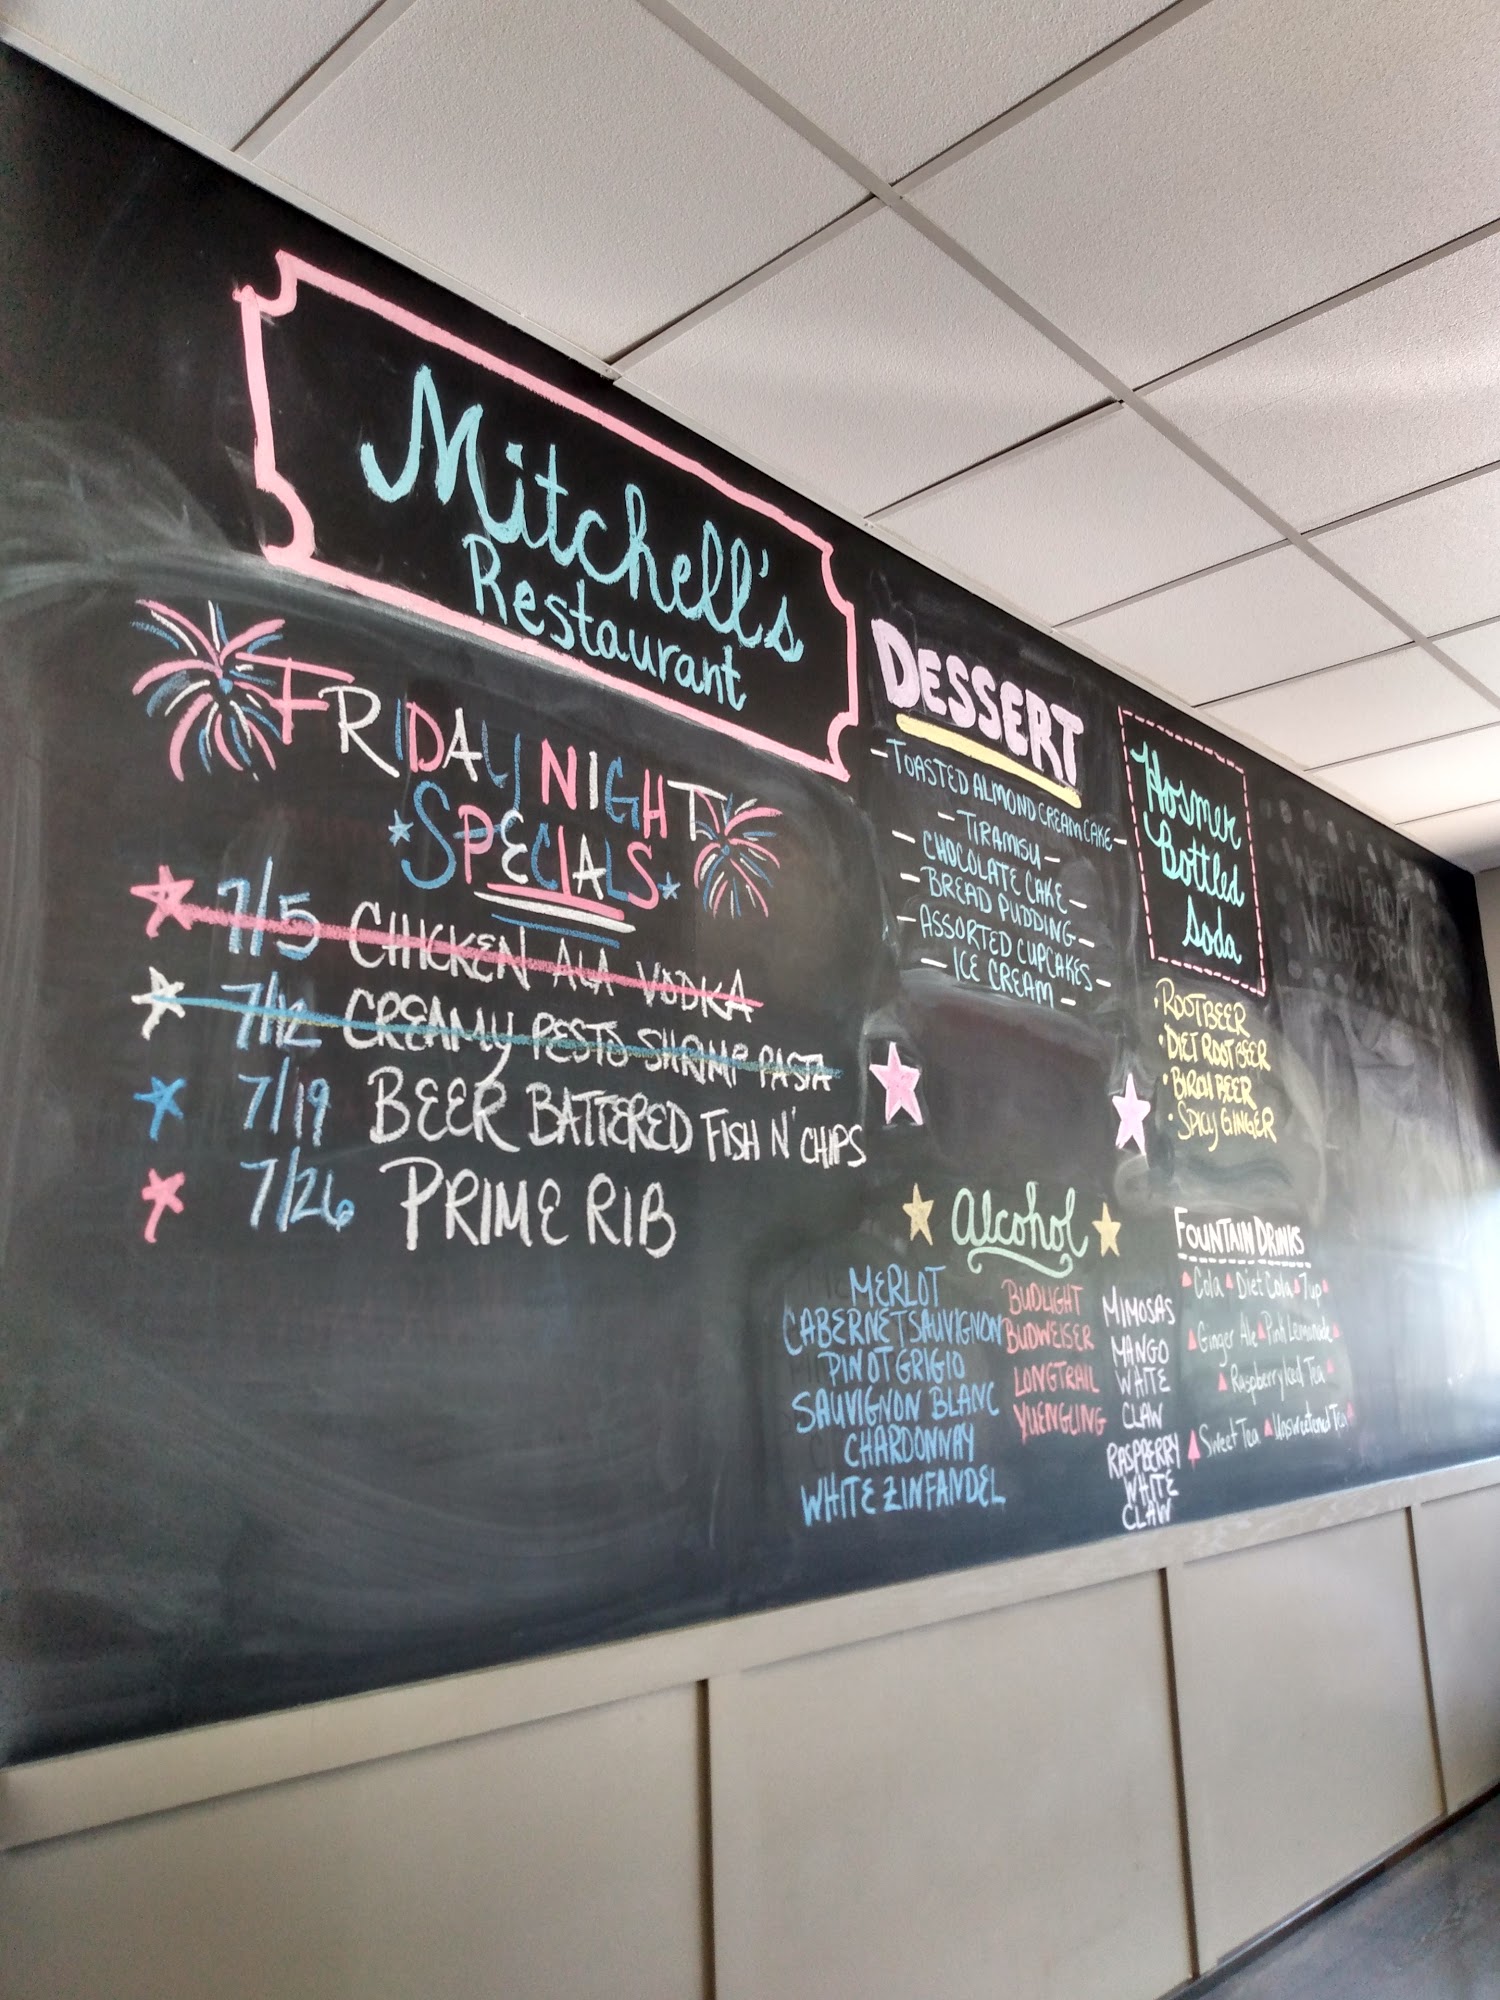 Mitchell's
Restaurant
FRIDAY NIGHT
SPECIALS
7/5 CHICKEN ALA VODKA
7/12 CREAMY PESTO SHRIMP PASTA
7/19 BEER BATTERED FISH N' CHIPS
7/26 PRIME RIB
DESSERT
- TOASTED ALMOND CREAM CAKE -
- TIRAMISU -
- CHOCOLATE CAKE -
- BREAD PUDDING -
- ASSORTED CUPCAKES -
- ICE CREAM -
Hosmer
Bottled
Soda
• ROOTBEER
• DIET ROOT BEER
• BIRCH BEER
• SPICY GINGER
Alcohol
MERLOT
CABERNET SAUVIGNON
PINOT GRIGIO
SAUVIGNON BLANC
CHARDONNAY
WHITE ZINFANDEL
BUDLIGHT
BUDWEISER
LONGTRAIL
YUENGLING
MIMOSAS
MANGO
WHITE
CLAW
RASPBERRY
WHITE
CLAW
FOUNTAIN DRINKS
Cola Diet Cola 7up
Ginger Ale Pink Lemonade
Raspberry Iced Tea
Sweet Tea Unsweetened Tea